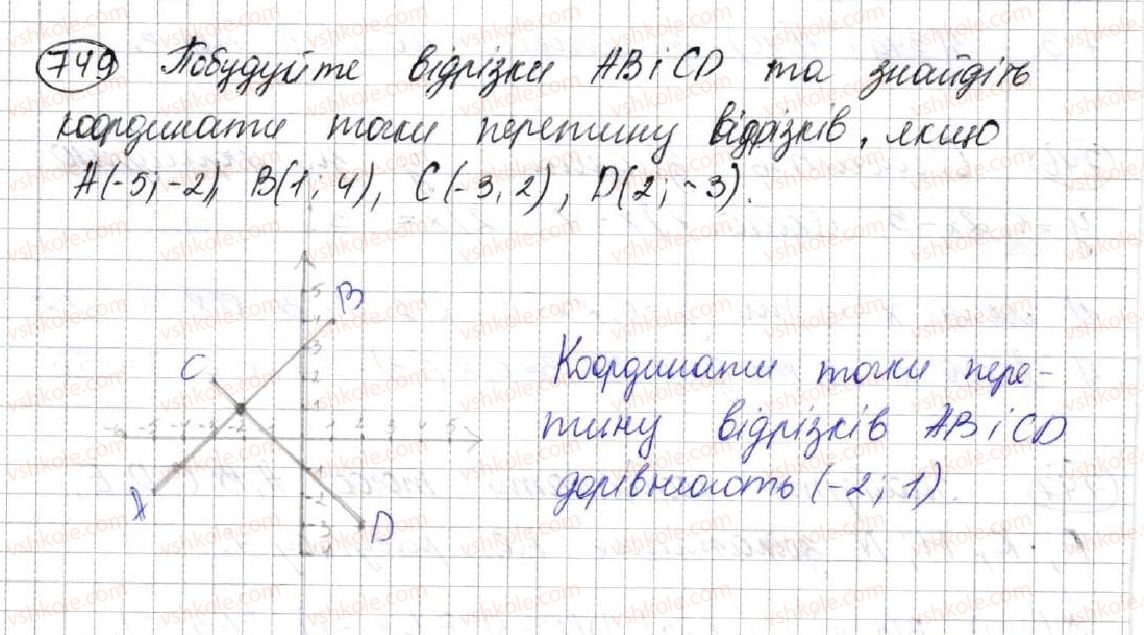 749 Побудуйте відрізки AB і CD та знайдіть
координати точки перетину відрізків, якщо
A(-5; -2), B(1; 4), C(-3, 2), D(2; -3).
B
5
4
3
C
2
1
-6 -5 -4 -3 -2 1 2 3 4 5
A
D
Координати точки пере-
тину відрізків AB і CD
дорівнюють (-2; 1)